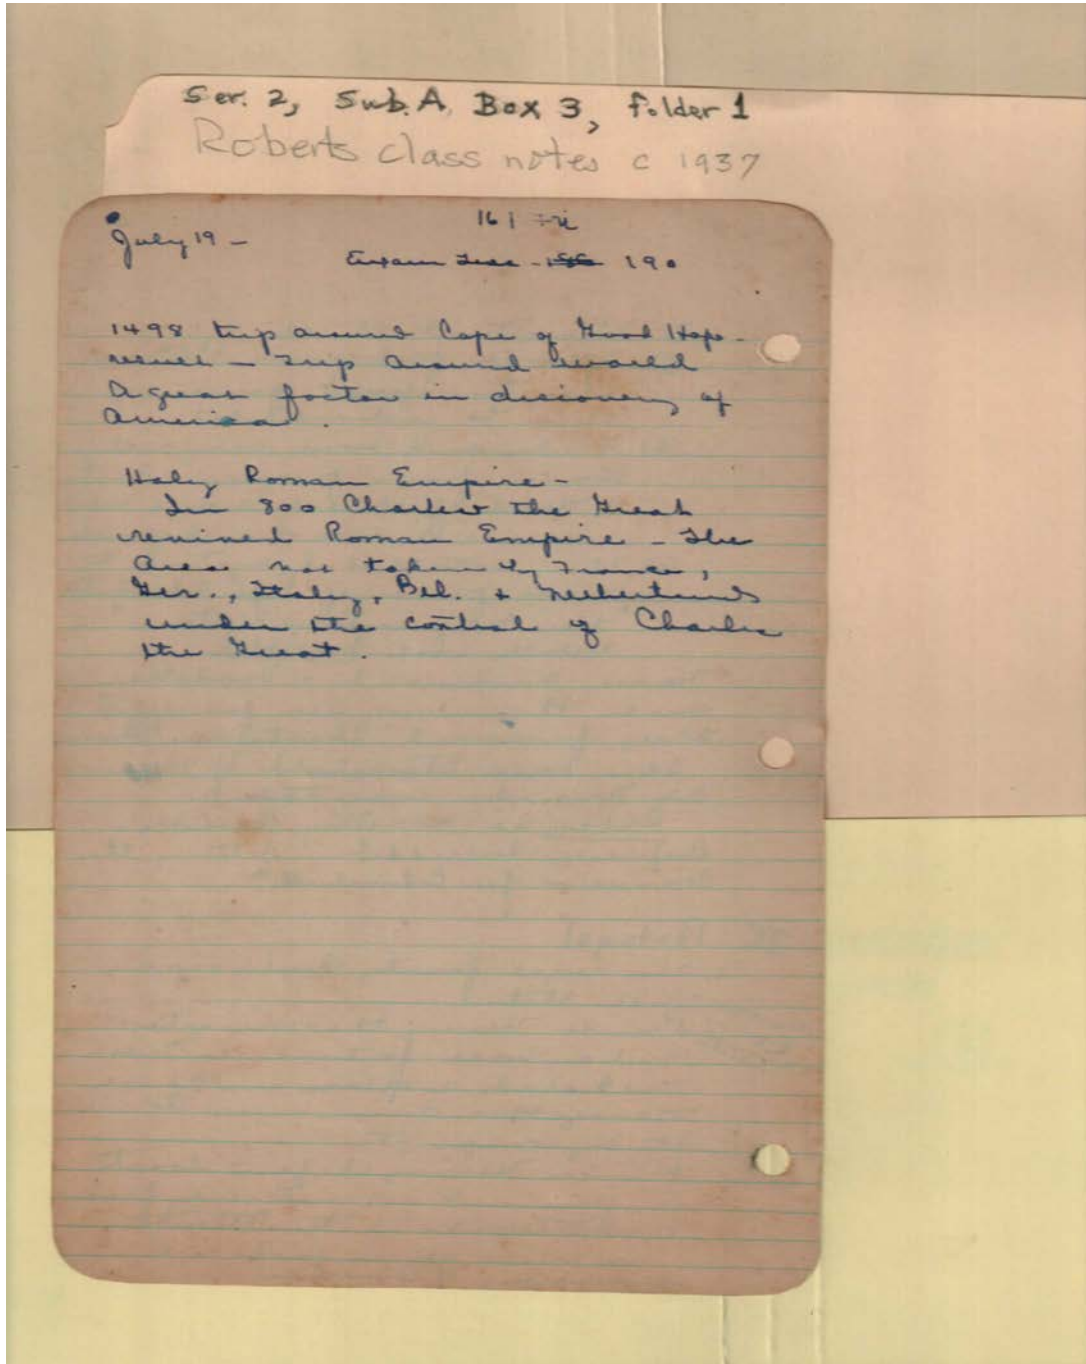 Ser. 2, Sub. A, Box 3, folder 1
Roberts class notes c 1937
July 19 -
161 Fri
Exam Tues - 190
1498 trip around Cape of Good Hope -
result - trip around world
A great factor in discovery of
America.
Holy Roman Empire -
In 800 Charles the Great
revived Roman Empire - The
area not taken by France,
Ger., Italy, Bel. + Netherlands
under the control of Charles
the Great.